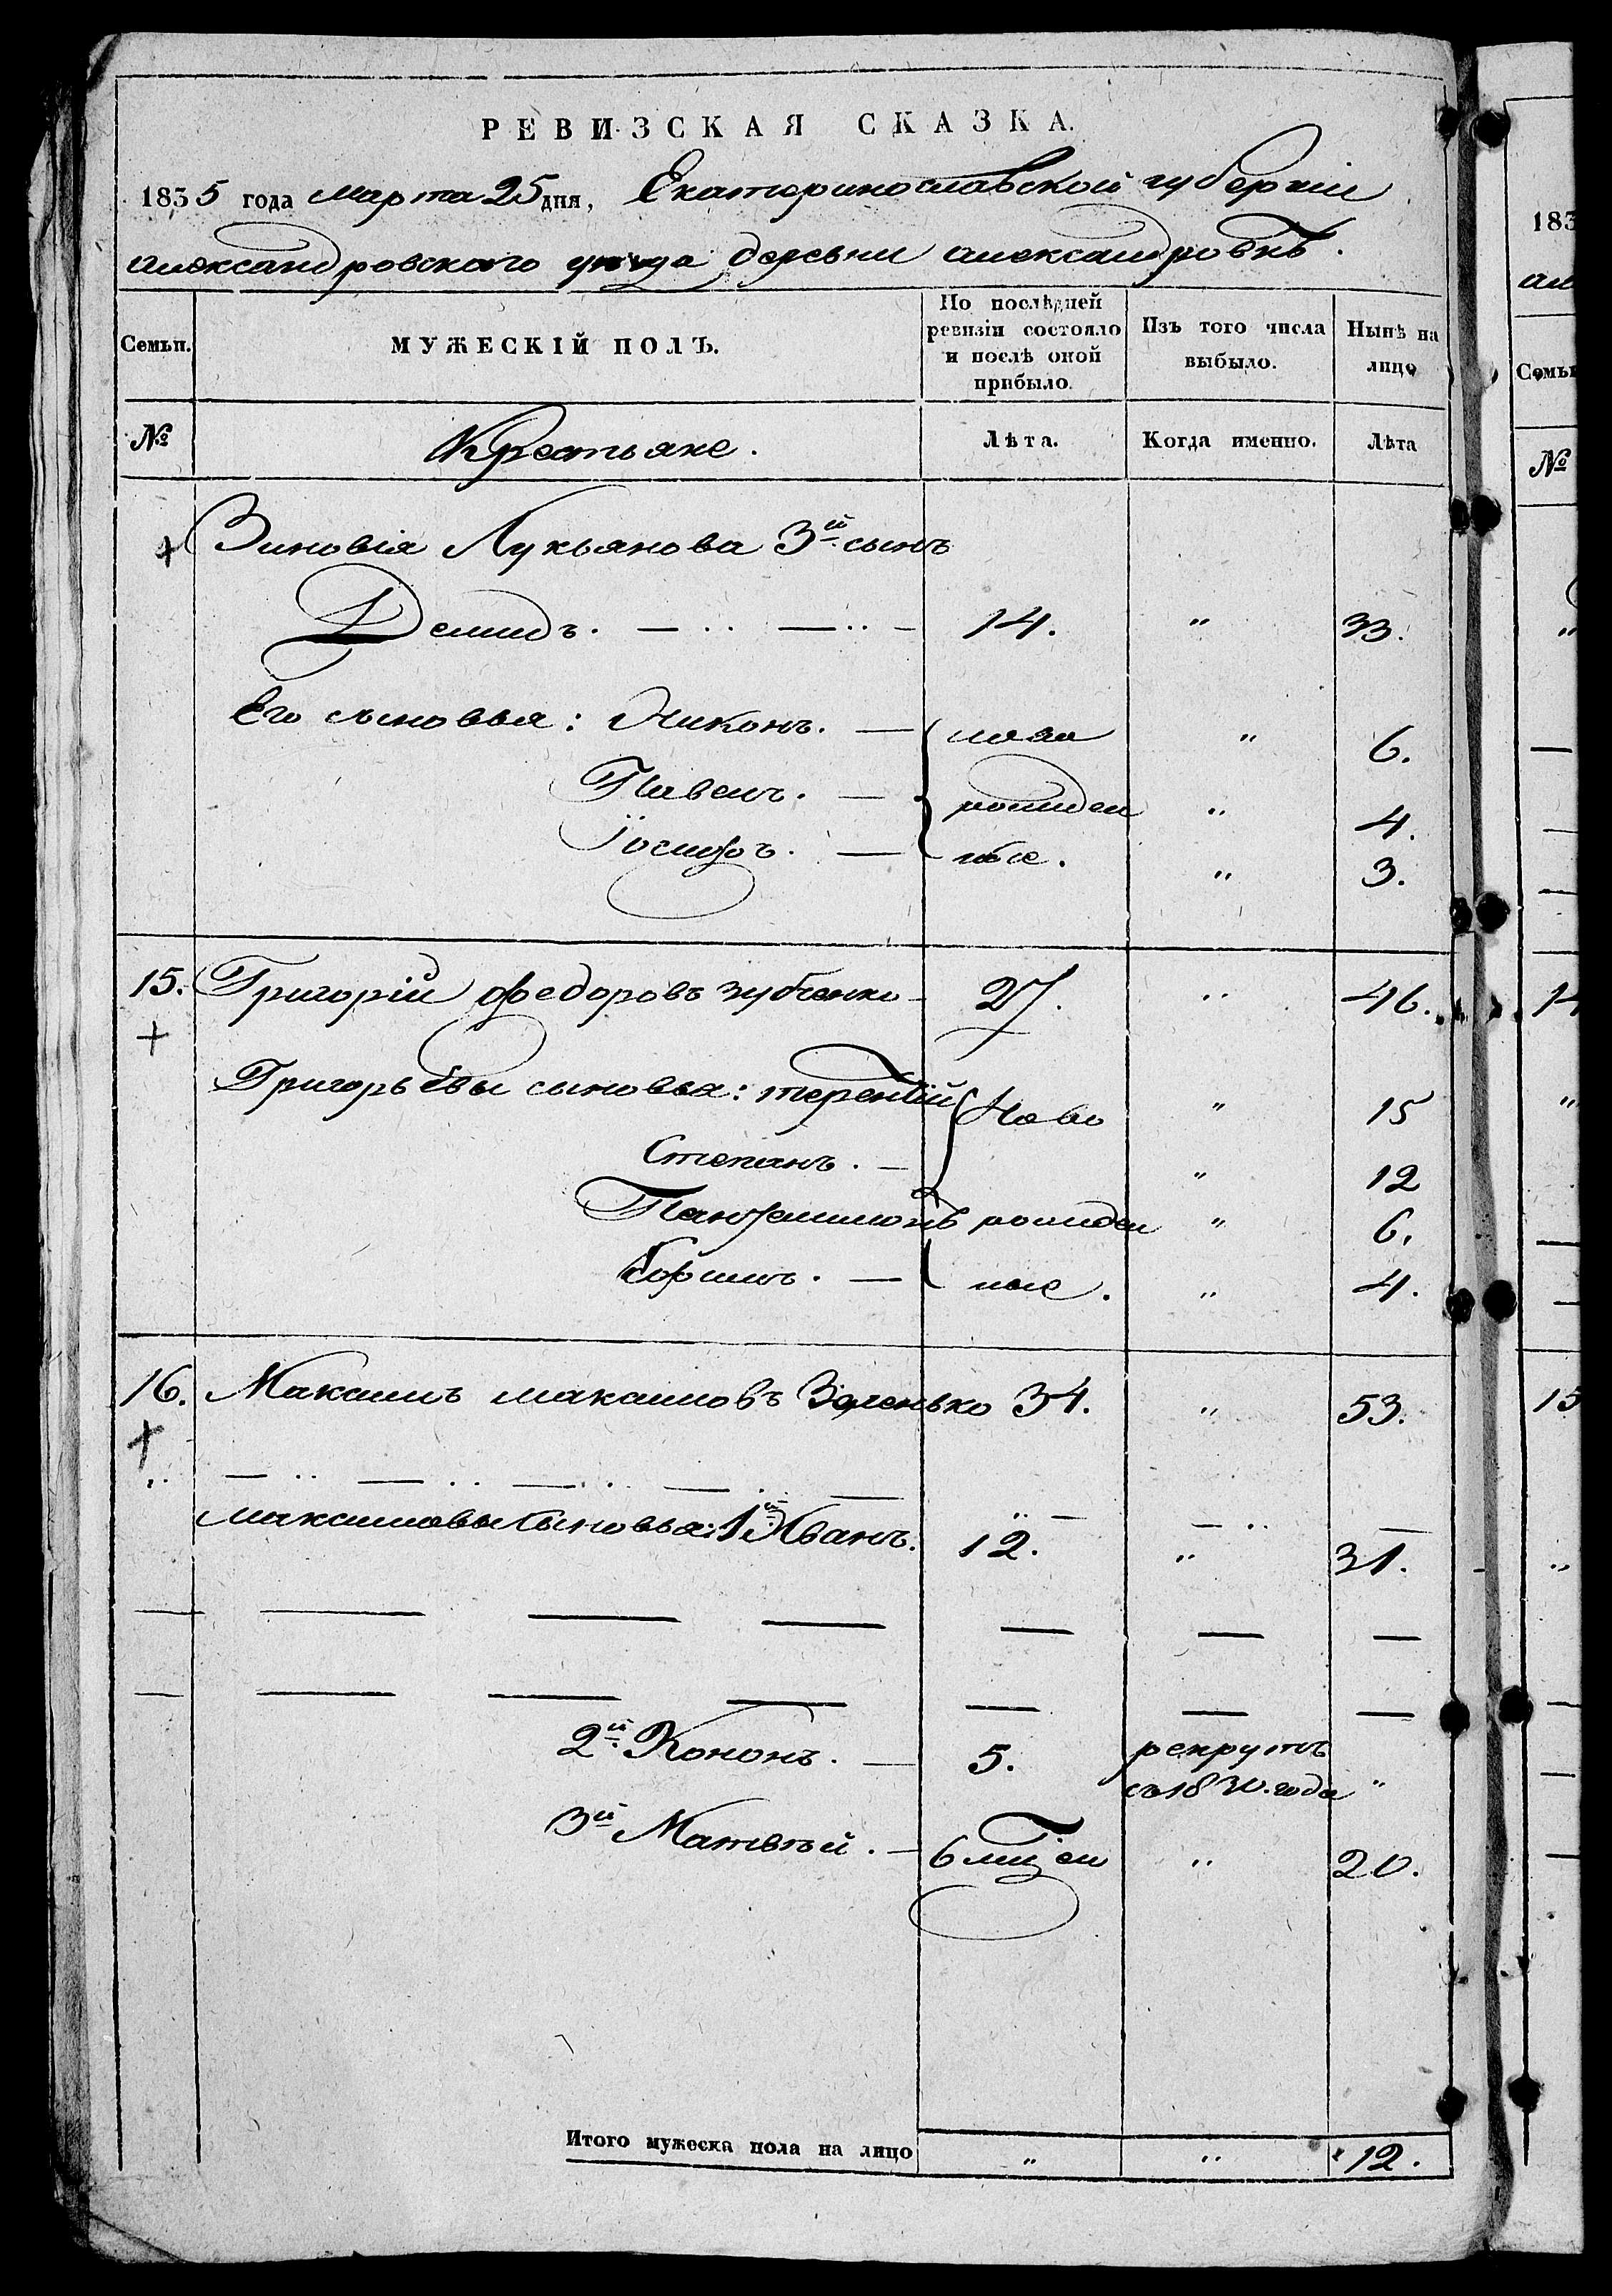 РЕВИЗСКАЯ СКАЗКА.
1835 года марта 25 дня, Екатеринославской губерніи
александровского уезда деревни александровкѣ.
Семьи. МУЖЕСКІЙ ПОЛЪ. По послѣдней ревизіи состояло и послѣ оной прибыло. Изъ того числа выбыло. Нынѣ на лицо
№ Крестьяне. Лѣта. Когда именно. Лѣта
+ Зиновія Лукьянова 3й сынъ
Демидъ. 14. " 33.
Его сыновья: Никонъ. — ново " 6.
Павелъ. — рожден " 4.
Іосифъ. — ные. " 3.
15. Григорій Федоровъ зубченко 27. " 46.
+
Григорьевы сыновья: терентій Ново " 15
Степанъ. — " 12
Пантелимонъ рожден " 6.
— ные. " 4.
16. Максимъ максимовъ Зеленько 34. " 53.
+
максимовы сыновья: 1й Иванъ. 12. " 31.
2й Кононъ. — 5. рекрутъ
съ 1830. года "
3й Матвѣй. — 6 " 20.
Итого мужеска пола на лицо " " 12.
183
ал
Семьи
№
14
15